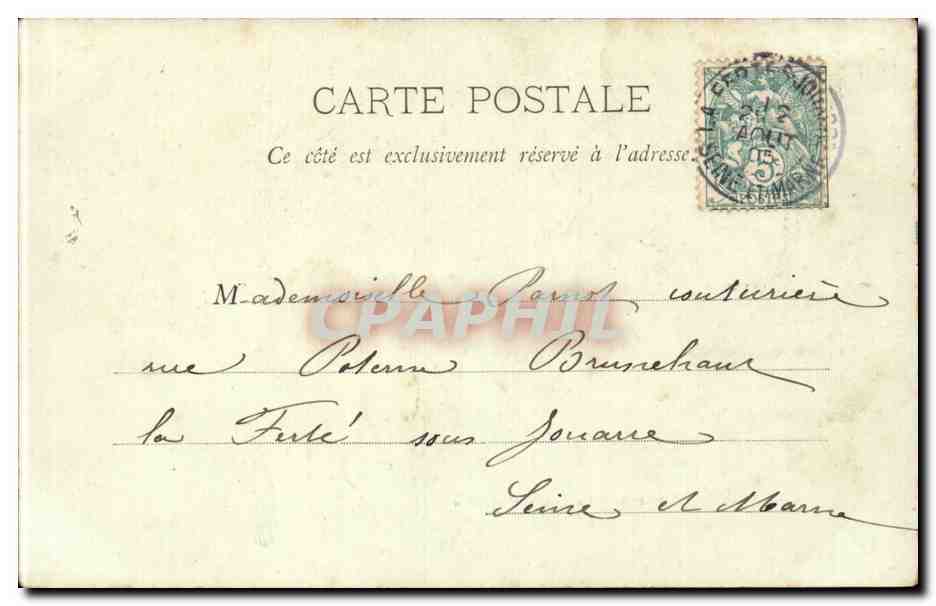 CARTE POSTALE
Ce côté est exclusivement réservé à l'adresse.
LA FERTE-S-JOUARRE
AOUT
SEINE-ET-MARNE
5
Mademoiselle Parnot couturière
CPAPHIL
rue Poterne Brunehaut
la Ferté sous Jouarre
Seine et Marne